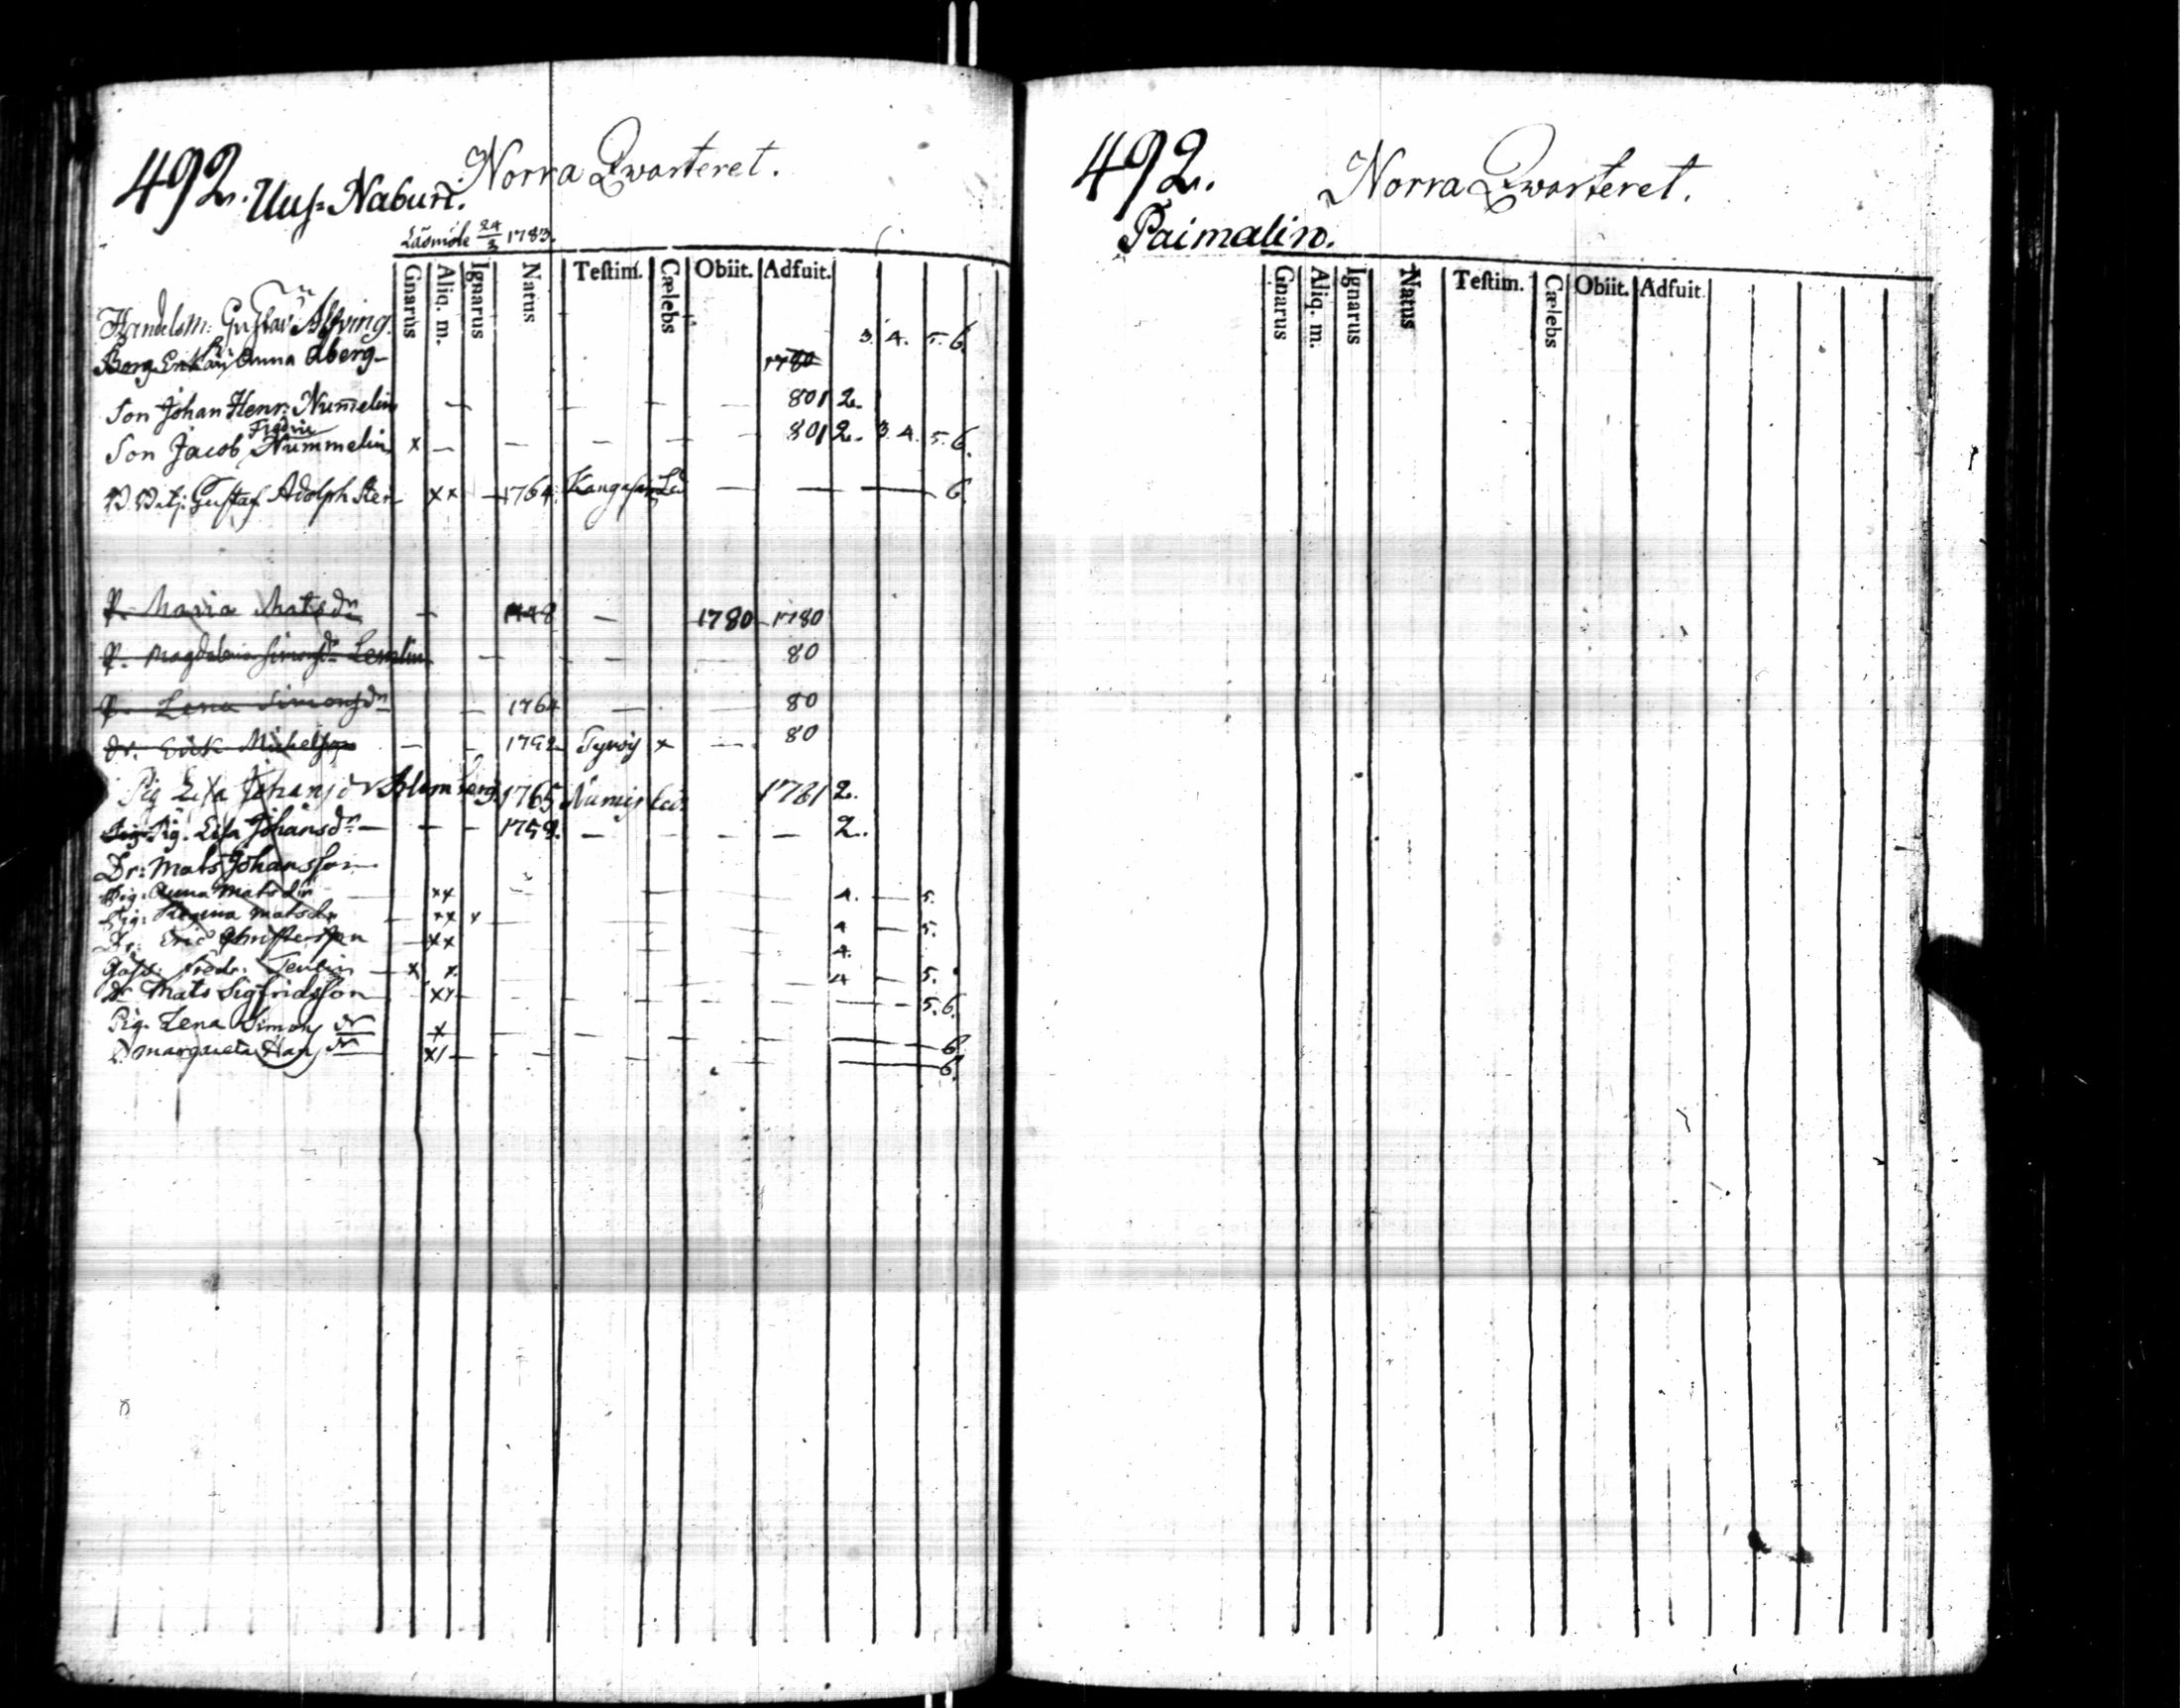 492. Norra Qwarteret.
Uus-Naburi.
Läsmöte 24/3 1783.
Gnarus Aliq. m. Ignarus Natus Testim. Cælebs Obiit. Adfuit.
Handelsm: Gustav 3. 4. 5. 6.
Anna Åberg 1780
Son Johan Henr: Nummelin — — — — 801 2.
Fredric
Son Jacob Nummelin x — — — — — 801 2. 3. 4. 5. 6.
Gustaf Adolph xx — 1764. — — — 6.
P. Maria Matsdr — 1748 — 1780 1780
P. Magdalena Simonsdr Lemlin — — — — 80
P. Lena Simonsdr — 1764 — — 80
Dr. Erik Michelsson — — x — 80
Pig Lisa Johansdr Blomberg 1765 1781 2.
Pig. Lisa Johansdr — — — — — — 2.
Dr: Mats Johansson
Pig: Anna Matsdr — xx — — — 4. — 5.
Pig: Regina Matsdr — xx x — — — 4 — 5.
Dr: Eric Christersson — xx — — — 4.
Fredr: — x x. — — — 4 — 5.
Dr Mats Sigfridsson xx — — — — — 5. 6.
Pig. Lena Simonsdr x — — — — — 6.
P. Margareta Hansdr — — — — 6.
492. Norra Qwarteret.
Paimalin.
Gnarus Aliq. m. Ignarus Natus Testim. Cælebs Obiit. Adfuit.